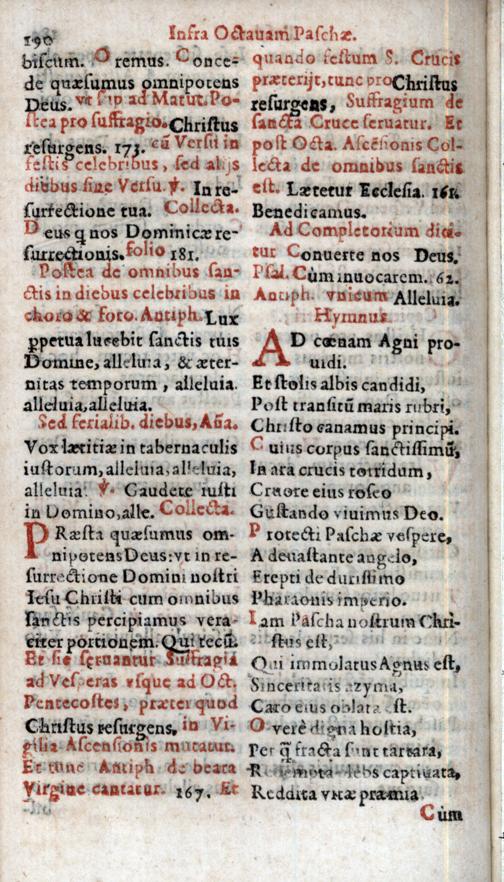 190
Infra Octavam Paschæ.
biscum. Oremus. Conce-
de quæsumus omnipotens
Deus. vt sup ad Matut. Po-
stea pro suffragio. Christus
resurgens. 173. cũ Versu in
festis celebribus, sed alijs
diebus sine Versu. ℣. In re-
surrectione tua. Collecta.
Deus q nos Dominicæ re-
surrectionis. folio 181.
Postea de omnibus san-
ctis in diebus celebribus in
choro & foro. Antiph. Lux
ꝑpetua lucebit sanctis tuis
Domine, alleluia, & æter-
nitas temporum, alleluia.
alleluia, alleluia.
Sed ferialib. diebus, Aña.
Vox lætitiæ in tabernaculis
iustorum, alleluia, alleluia,
alleluia. ℣. Gaudete iusti
in Domino, alle. Collecta.
PRæsta quæsumus om-
nipotens Deus: vt in re-
surrectione Domini nostri
Iesu Christi cum omnibus
sanctis percipiamus vera-
citer portionem. Qui tecũ.
Et sic seruantur Suffragia
ad Vesperas vsque ad Oct.
Pentecostes, præter quod
Christus resurgens, in Vi-
gilia Ascensionis mutatur.
Et tunc Antiph de beata
Virgine cantatur. 167. Et
quando festum S. Crucis
præterijt, tunc pro Christus
resurgens, Suffragium de
sancta Cruce seruatur. Et
post Octa. Ascẽsionis Col-
lecta de omnibus sanctis
est. Lætetur Ecclesia. 161.
Benedicamus.
Ad Completorium dici-
tur Conuerte nos Deus.
Psal. Cùm inuocarem. 62.
Antiph. vnicum Alleluia.
Hymnus.
AD cœnam Agni pro-
uidi.
Et stolis albis candidi,
Post transitũ maris rubri,
Christo canamus principi.
Cuius corpus sanctissimũ,
In ara crucis torridum,
Cruore eius roseo
Gustando viuimus Deo.
Protecti Paschæ vespere,
A deuastante angelo,
Erepti de durissimo
Pharaonis imperio.
Iam Pascha nostrum Chri-
stus est,
Qui immolatus Agnus est,
Sinceritatis azyma,
Caro eius oblata est.
O verè digna hostia,
Per q̃ fracta sunt tartara,
Redempta plebs captiuata,
Reddita vitæ præmia.
Cùm